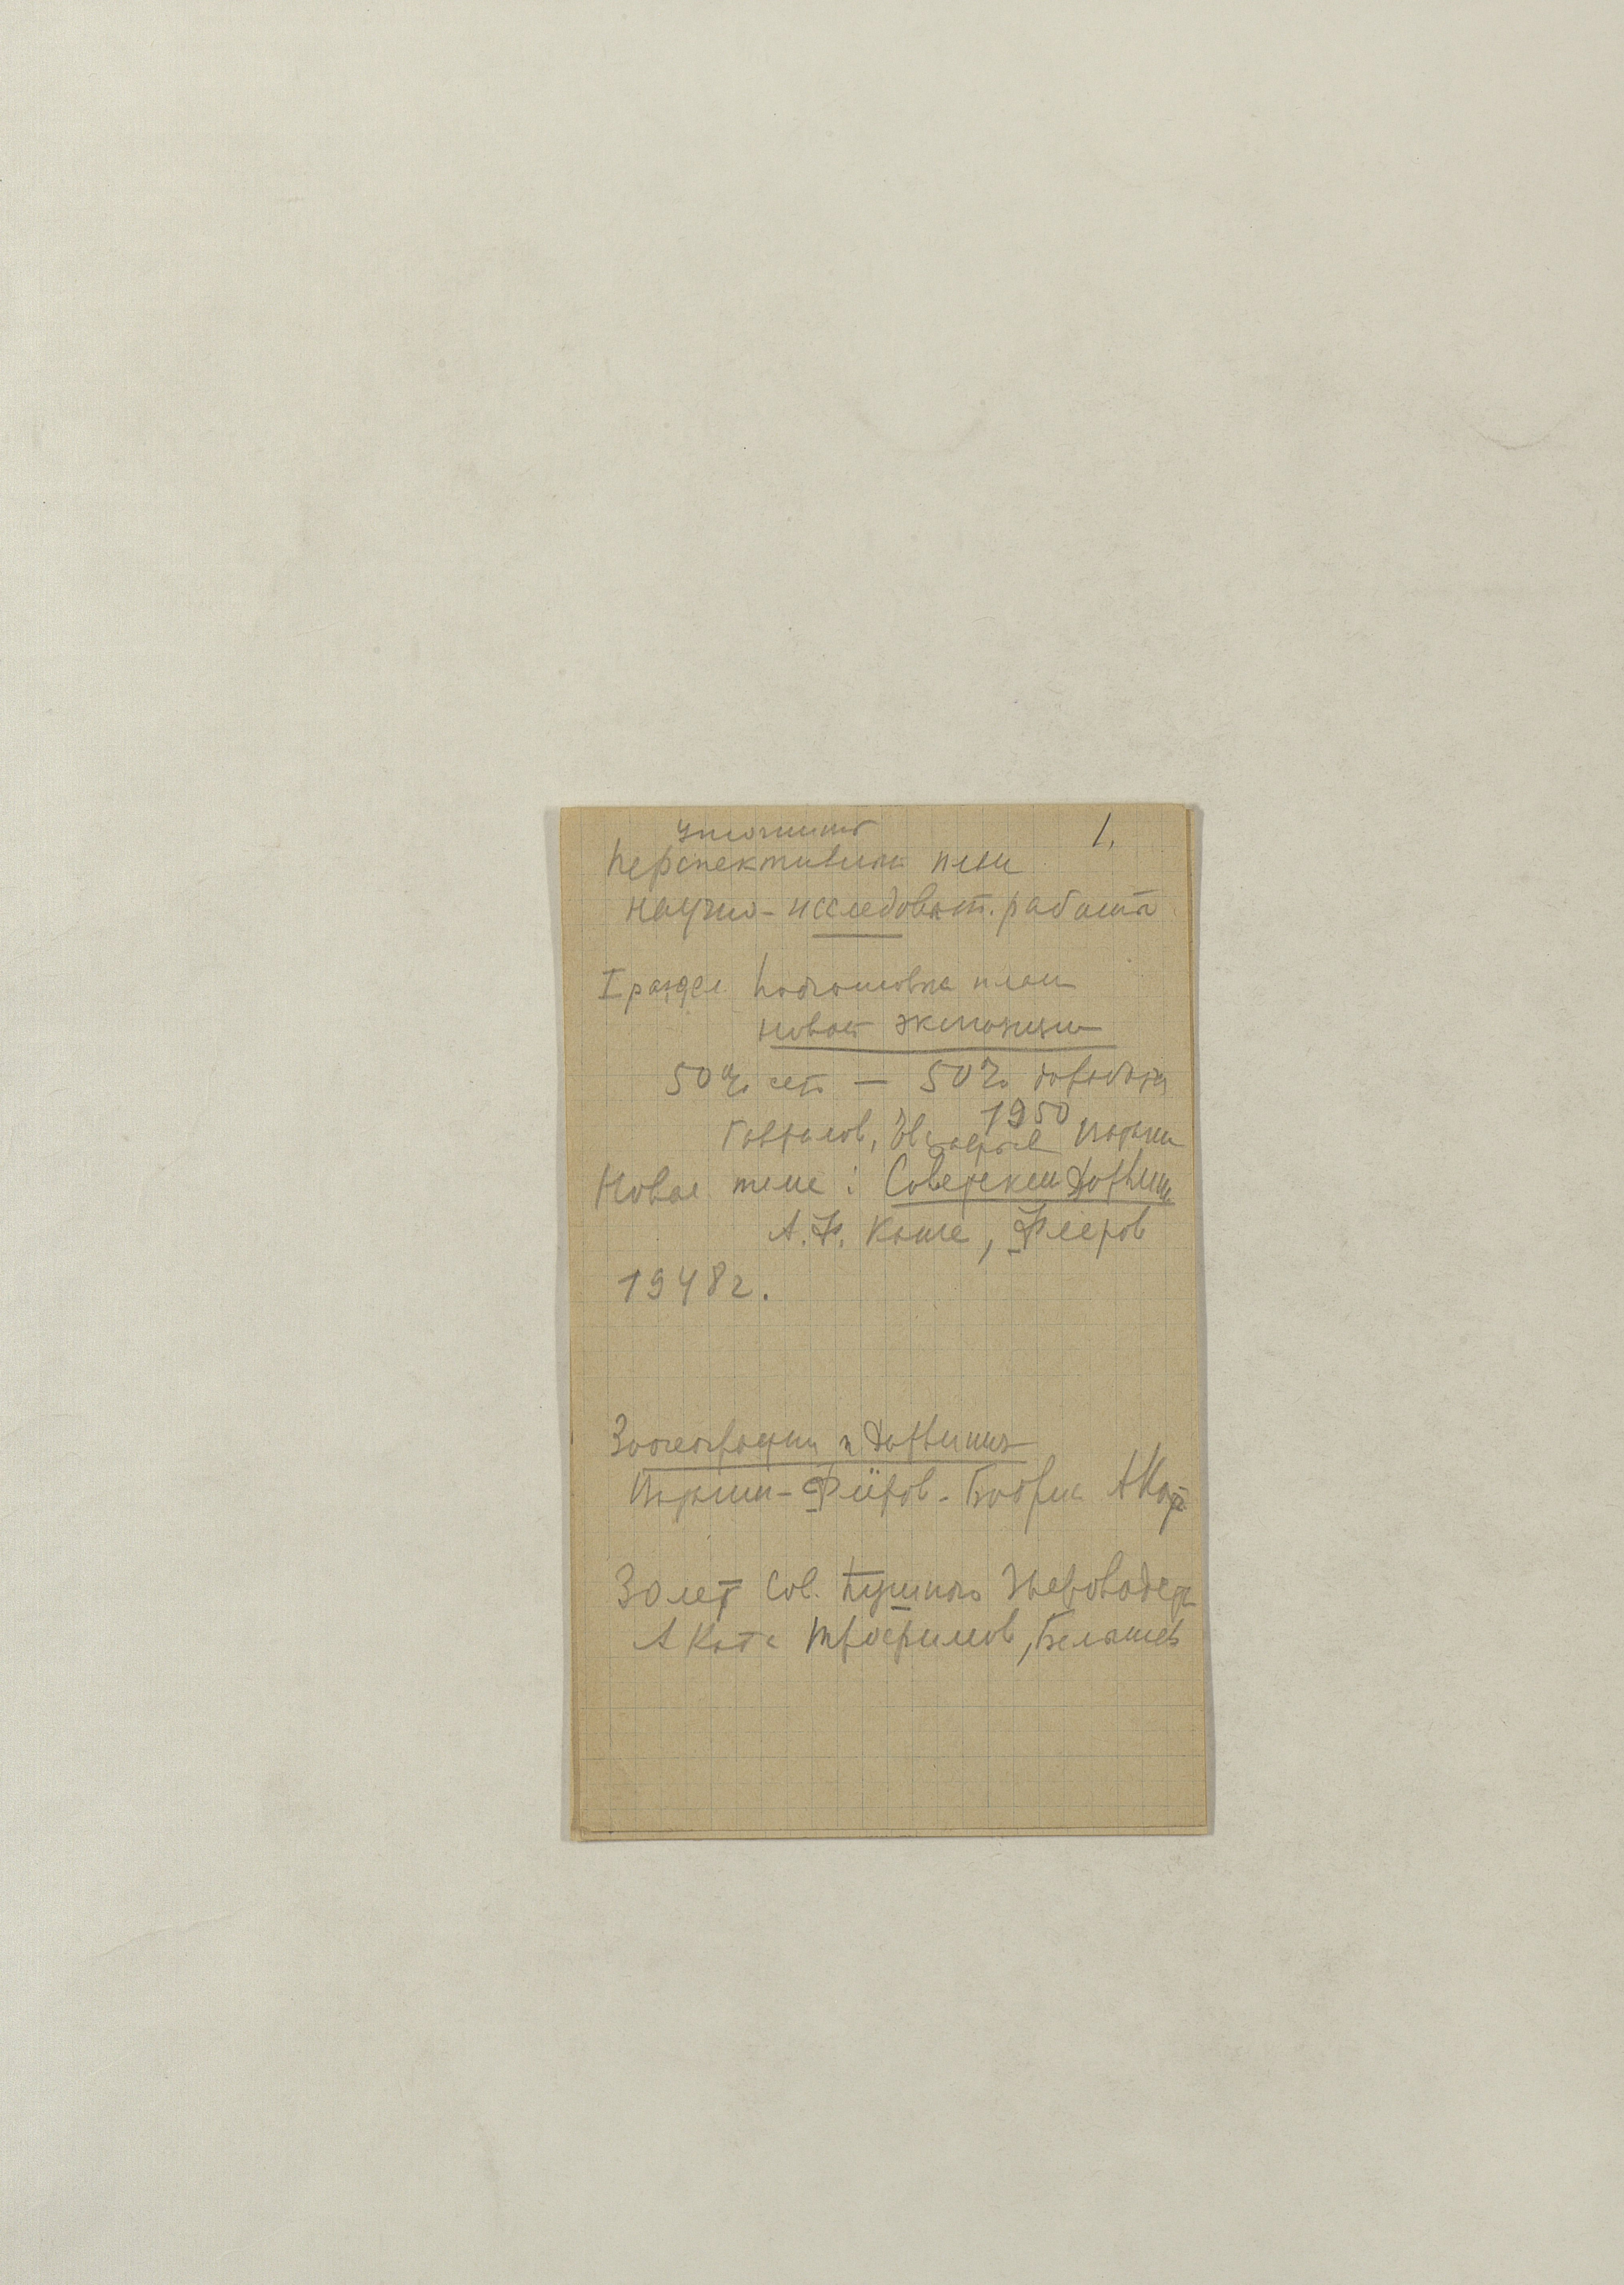 1.
Уточнить
Перспективный план
научно-исследоват. работы
I раздел Подготовка план
новой экспозиции
50% есть — 50% доработка
1950
Гаврилов,
Новая тема: Советский Дарвинизм
А.Ф. Котс, Флеров
1948 г.
Зоогеография и Дарвинизм
Флёров - Бобрин АКотс
30 лет Сов. Пушного Звероводства
А Котс Трофимов, Беляев